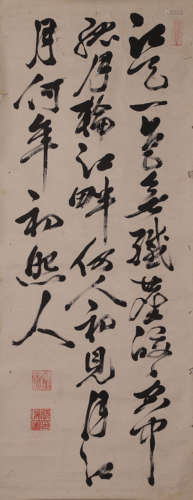 江天一色無纖塵皎々空中
孤月輪江畔何人初見月江
月何年初照人